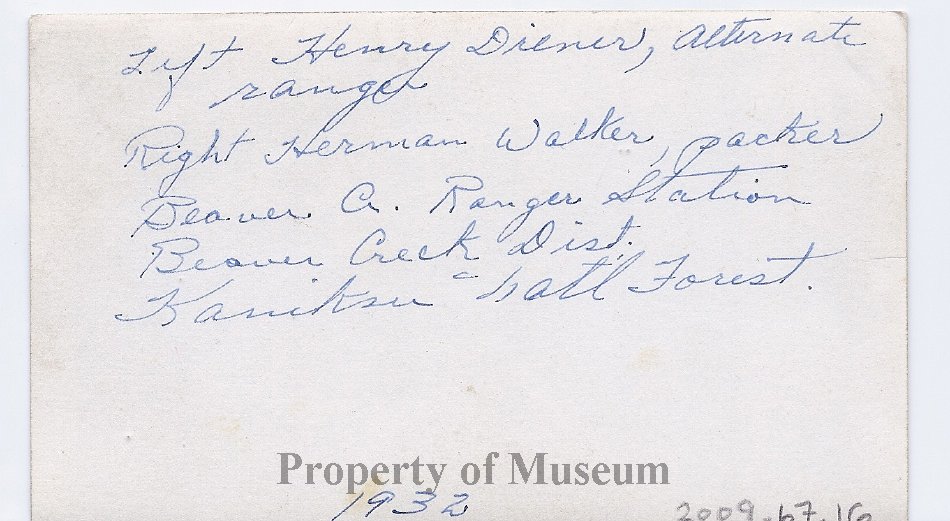 Left Henry Diener, Alternate
ranger
Right Herman Walker, packer
Beaver Cr. Ranger Station
Beaver Creek Dist.
Kaniksu - Natl Forest.
Property of Museum
1932
2009.67.16